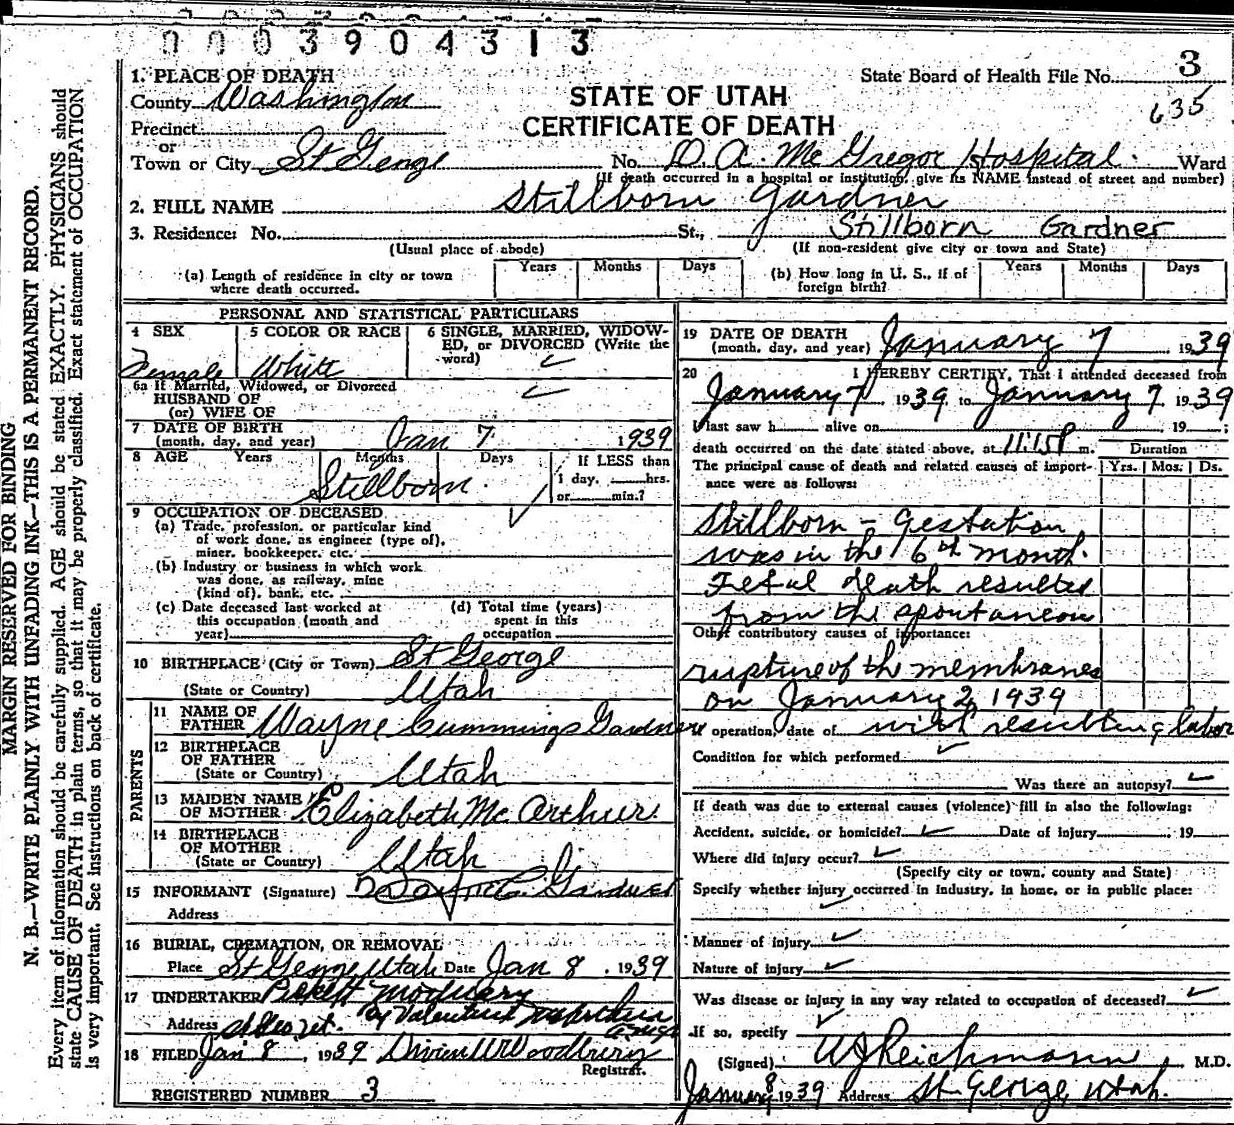 0003904313
1. PLACE OF DEATH
State Board of Health File No. 3
County Washington
STATE OF UTAH
635
Precinct
CERTIFICATE OF DEATH
or
Town or City St George No. D. A. McGregor Hospital. Ward
(If death occurred in a hospital or institution, give its NAME instead of street and number)
2. FULL NAME Stillborn Gardner
3. Residence: No. St., Stillborn Gardner
(Usual place of abode) (If non-resident give city or town and State)
(a) Length of residence in city or town where death occurred. Years Months Days
(b) How long in U. S., if of foreign birth? Years Months Days
PERSONAL AND STATISTICAL PARTICULARS
4 SEX Female
5 COLOR OR RACE White
6 SINGLE, MARRIED, WIDOWED, or DIVORCED (Write the word)
6a If Married, Widowed, or Divorced
HUSBAND OF
(or) WIFE OF
7 DATE OF BIRTH
(month, day, and year) Jan 7 1939
8 AGE Years Months Days If LESS than
Stillborn. 1 day, hrs.
or min.?
9 OCCUPATION OF DECEASED
(a) Trade, profession, or particular kind
of work done, as engineer (type of),
miner, bookkeeper, etc.
(b) Industry or business in which work
was done, as railway, mine
(kind of), bank, etc.
(c) Date deceased last worked at
this occupation (month and
year)
(d) Total time (years)
spent in this
occupation
10 BIRTHPLACE (City or Town) St George
(State or Country) Utah
PARENTS
11 NAME OF
FATHER Wayne Cummings Gardner
12 BIRTHPLACE
OF FATHER
(State or Country) Utah
13 MAIDEN NAME
OF MOTHER Elizabeth McArthur.
14 BIRTHPLACE
OF MOTHER
(State or Country) Utah
15 INFORMANT (Signature) Wayne C. Gardner
Address
16 BURIAL, CREMATION, OR REMOVAL
Place St George Utah Date Jan 8, 1939
17 UNDERTAKER Pickett Mortuary
by Valentine McArthur
Address
18 FILED Jan 8, 1939 Woodbury
Registrar.
REGISTERED NUMBER 3
19 DATE OF DEATH
(month, day, and year) January 7 1939
20 I HEREBY CERTIFY, That I attended deceased from
January 7, 1939 to January 7, 1939
I last saw h alive on 19 ;
death occurred on the date stated above, at 11:15P m.
Duration
The principal cause of death and related causes of importance were as follows: Yrs. Mos. Ds.
Stillborn - Gestation
was in the 6th month.
Fetal death resulted
from the spontaneous
Other contributory causes of importance:
rupture of the membranes
on January 2, 1939
If operation, date of with resulting labor
Condition for which performed
Was there an autopsy?
If death was due to external causes (violence) fill in also the following:
Accident, suicide, or homicide? Date of injury , 19
Where did injury occur?
(Specify city or town, county and State)
Specify whether injury occurred in industry, in home, or in public place:
Manner of injury
Nature of injury
Was disease or injury in any way related to occupation of deceased?
If so, specify
(Signed) WJ Reichmann M.D.
January 8 1939 Address St. George, Utah.
MARGIN RESERVED FOR BINDING
N. B.—WRITE PLAINLY WITH UNFADING INK—THIS IS A PERMANENT RECORD.
Every item of information should be carefully supplied. AGE should be stated EXACTLY. PHYSICIANS should
state CAUSE OF DEATH in plain terms, so that it may be properly classified. Exact statement of OCCUPATION
is very important. See instructions on back of certificate.